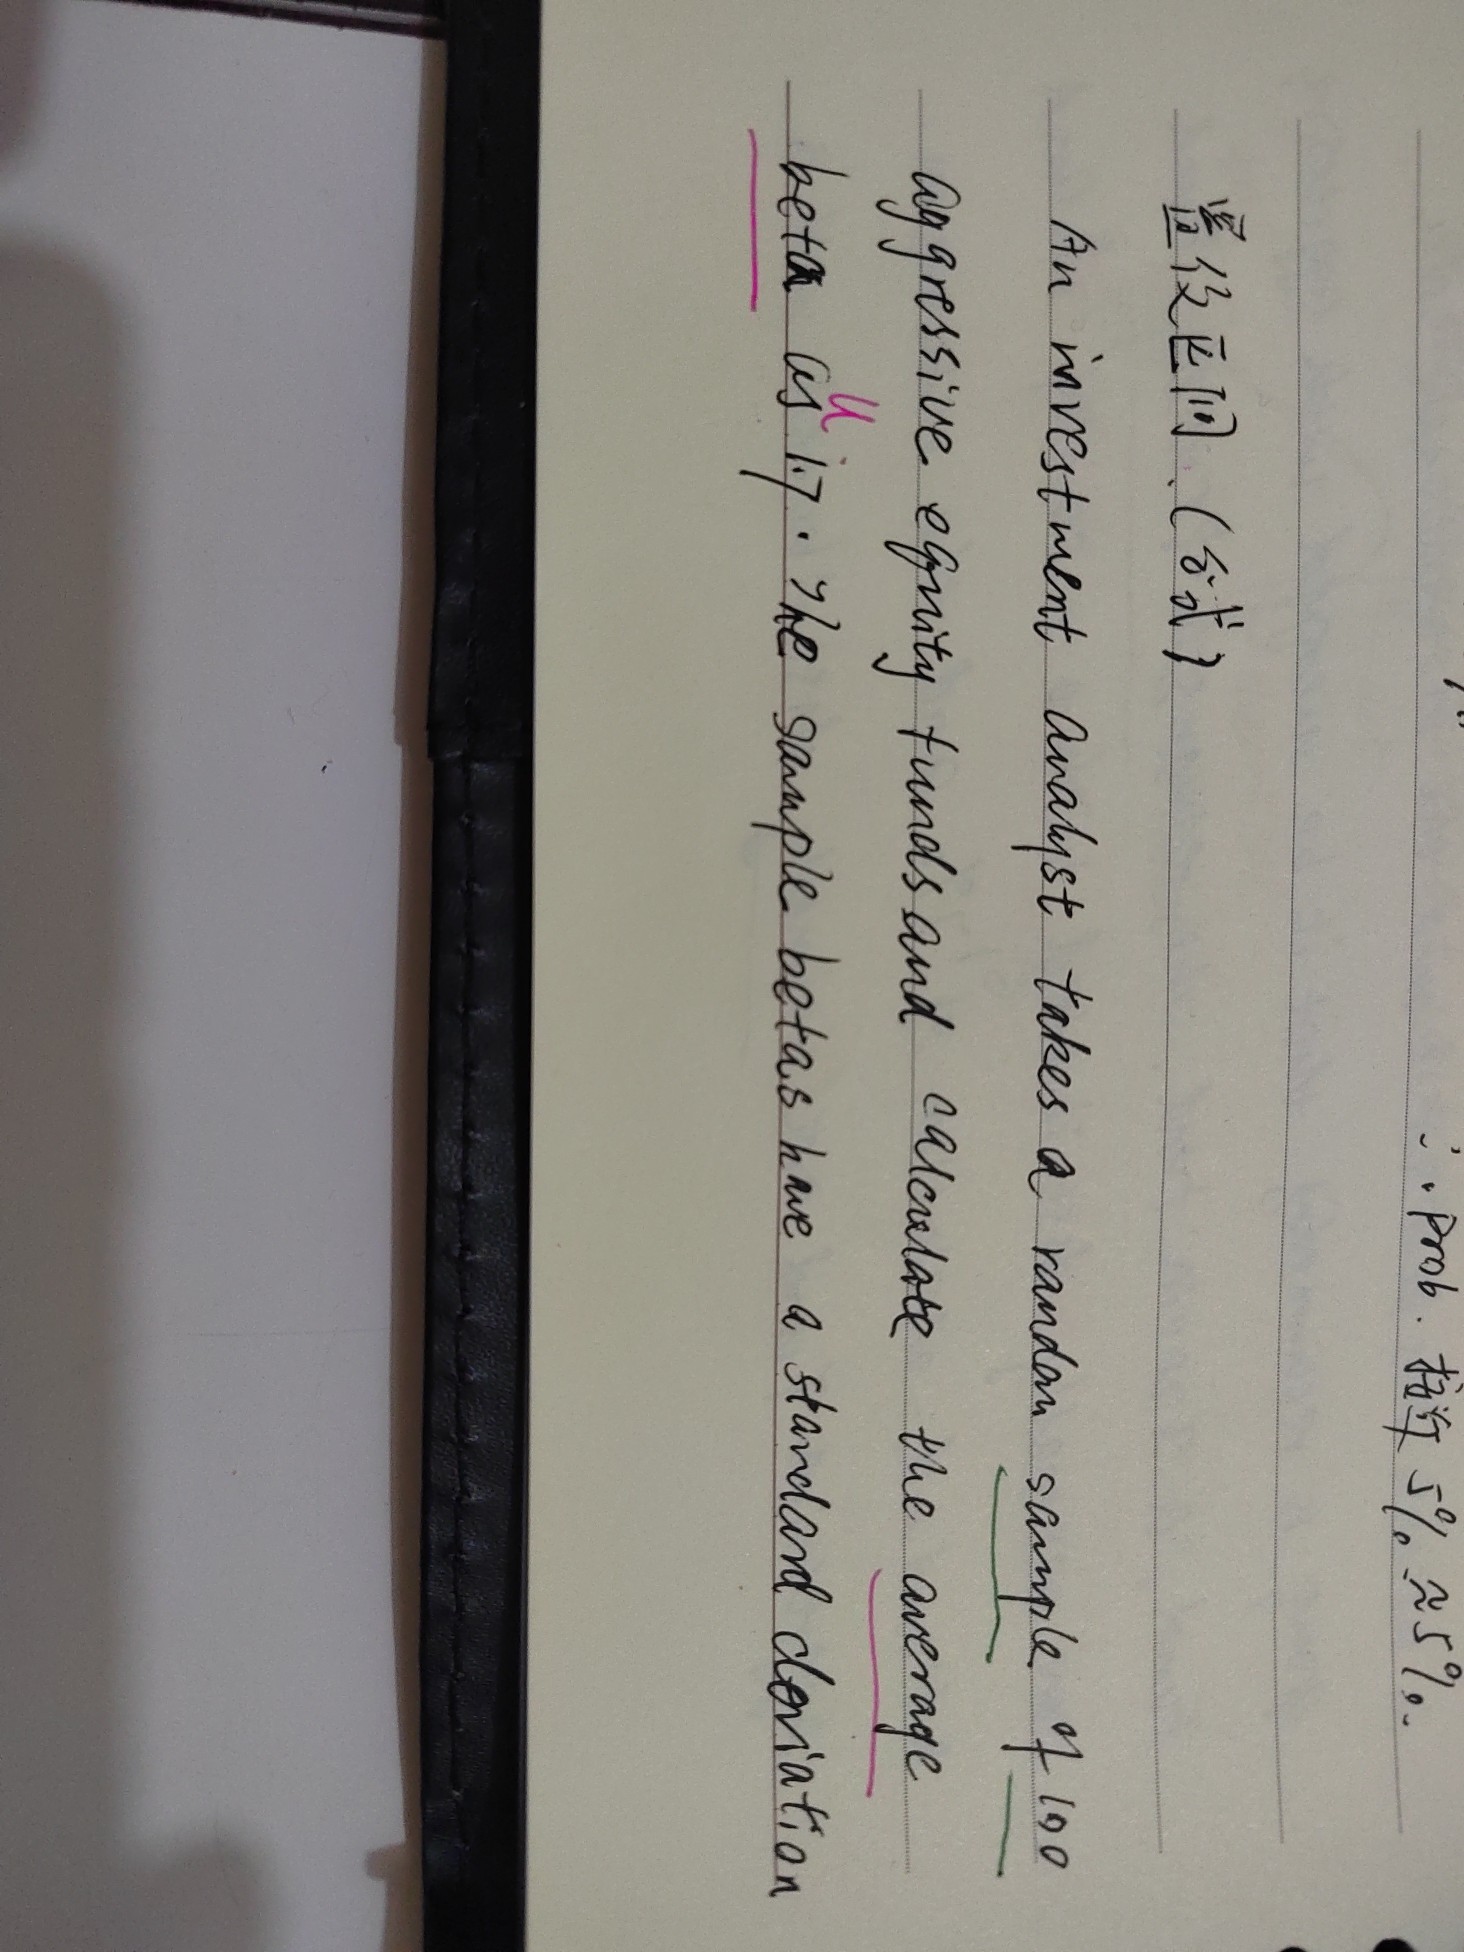 ∴ prob. 按算 5% ≈ 5%.
置信区间 (公式)
An investment analyst takes a random sample of 100
aggressive equity funds and calculate the average
u
beta as 1.7. The sample betas have a standard deviation